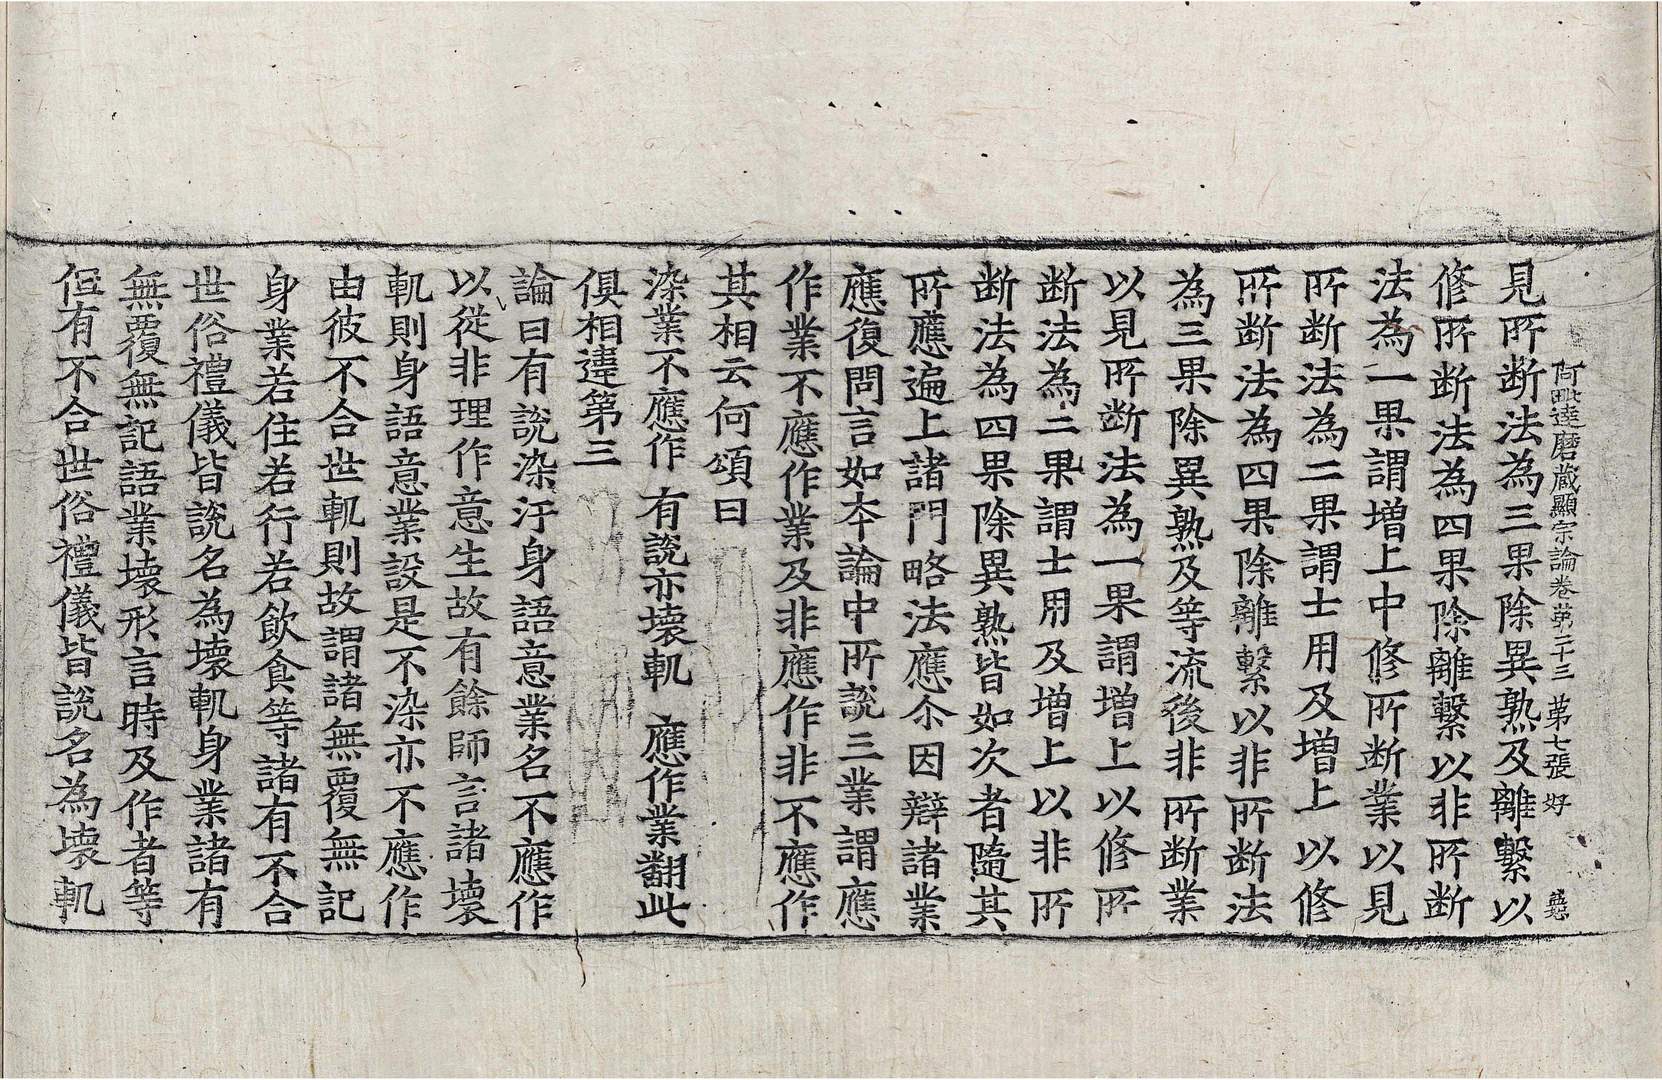 阿毗達磨藏顯宗論卷第二十三 第七張 好
見所斷法為三果除異熟及離繫以
修所斷法為四果除離繫以非所斷
法為一果謂增上中修所斷業以見
所斷法為二果謂士用及增上以修
所斷法為四果除離繫以非所斷法
為三果除異熟及等流後非所斷業
以見所斷法為一果謂增上以修所
斷法為二果謂士用及增上以非所
斷法為四果除異熟皆如次者隨其
所應遍上諸門略法應尒因辯諸業
應復問言如本論中所說三業謂應
作業不應作業及非應作非不應作
其相云何頌曰
染業不應作 有說亦壞軌 應作業翻此
俱相違第三
論曰有說染汙身語意業名不應作
以從非理作意生故有餘師言諸壞
軌則身語意業設是不染亦不應作
由彼不合世軌則故謂諸無覆無記
身業若住若行若飲食等諸有不合
世俗禮儀皆說名為壞軌身業諸有
無覆無記語業壞形言時及作者等
但有不合世俗禮儀皆說名為壞軌